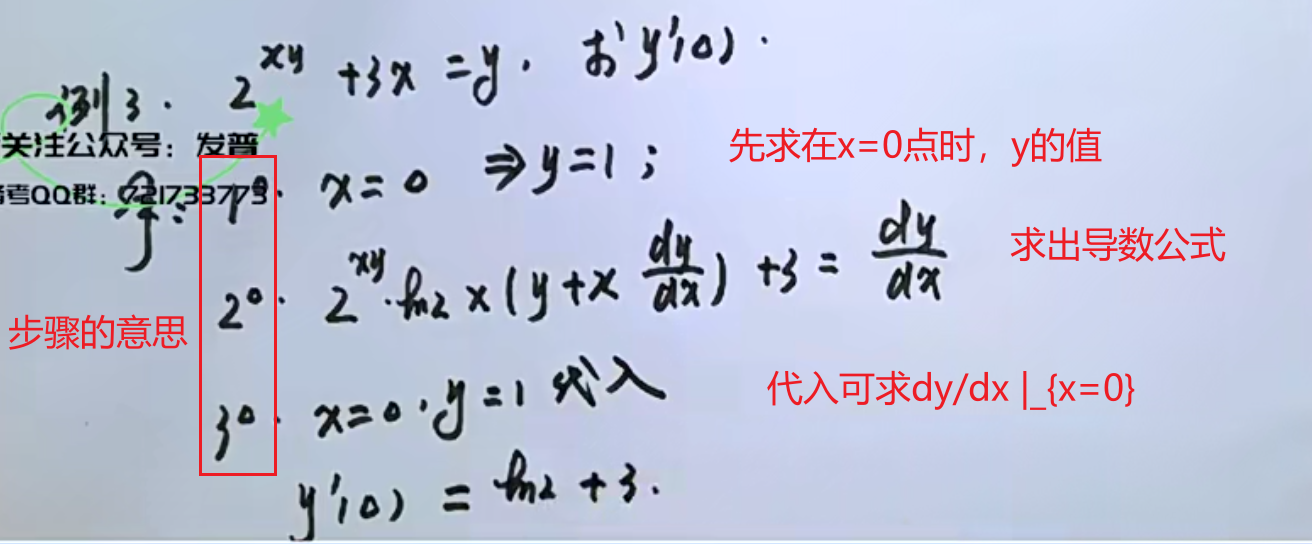 例3. 2^{xy} +3x = y. 求y'(0).
关注公众号：发普
考QQ群：721733773
解：1°. x=0 ⇒ y=1；
先求在x=0点时，y的值
2°. 2^{xy}·ln2 × (y+x dy/dx) +3 = dy/dx
求出导数公式
步骤的意思
3°. x=0，y=1 代入
代入可求dy/dx |_{x=0}
y'(0) = ln2 +3.